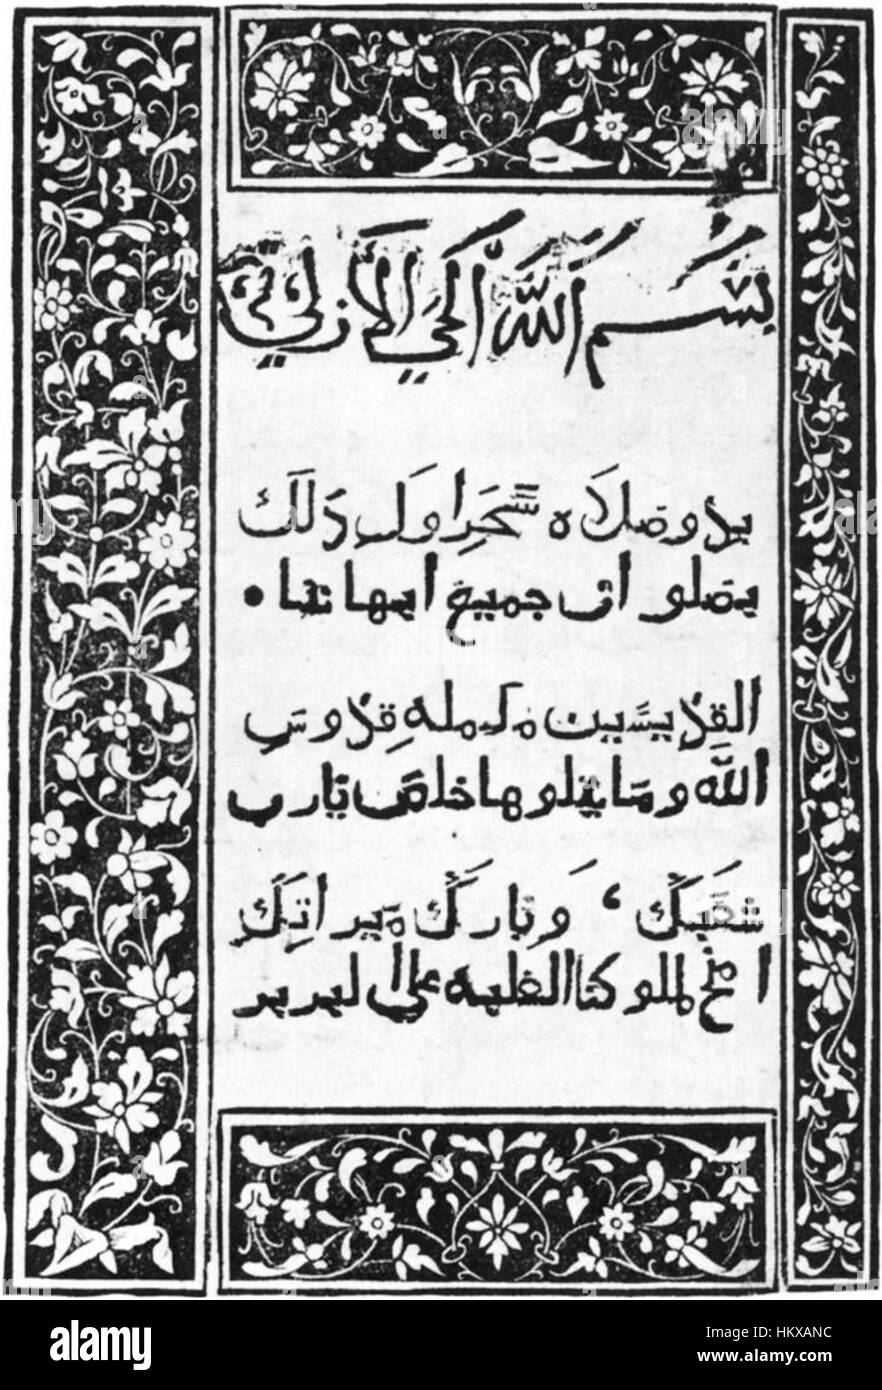 بِسْمِ اللّٰهِ الحي الأزلي
يدو صلاه سحر اول دلك
يصلو ان جميع ايهاتها •
القلا يسيين مكمله قلاوس
اللّٰه وما يتلوها خلص يارب
شعبك، وبارك ميراتك
امنح لملوكنا الغلبه على البربر
alamy
Image ID: HKXANC
www.alamy.com